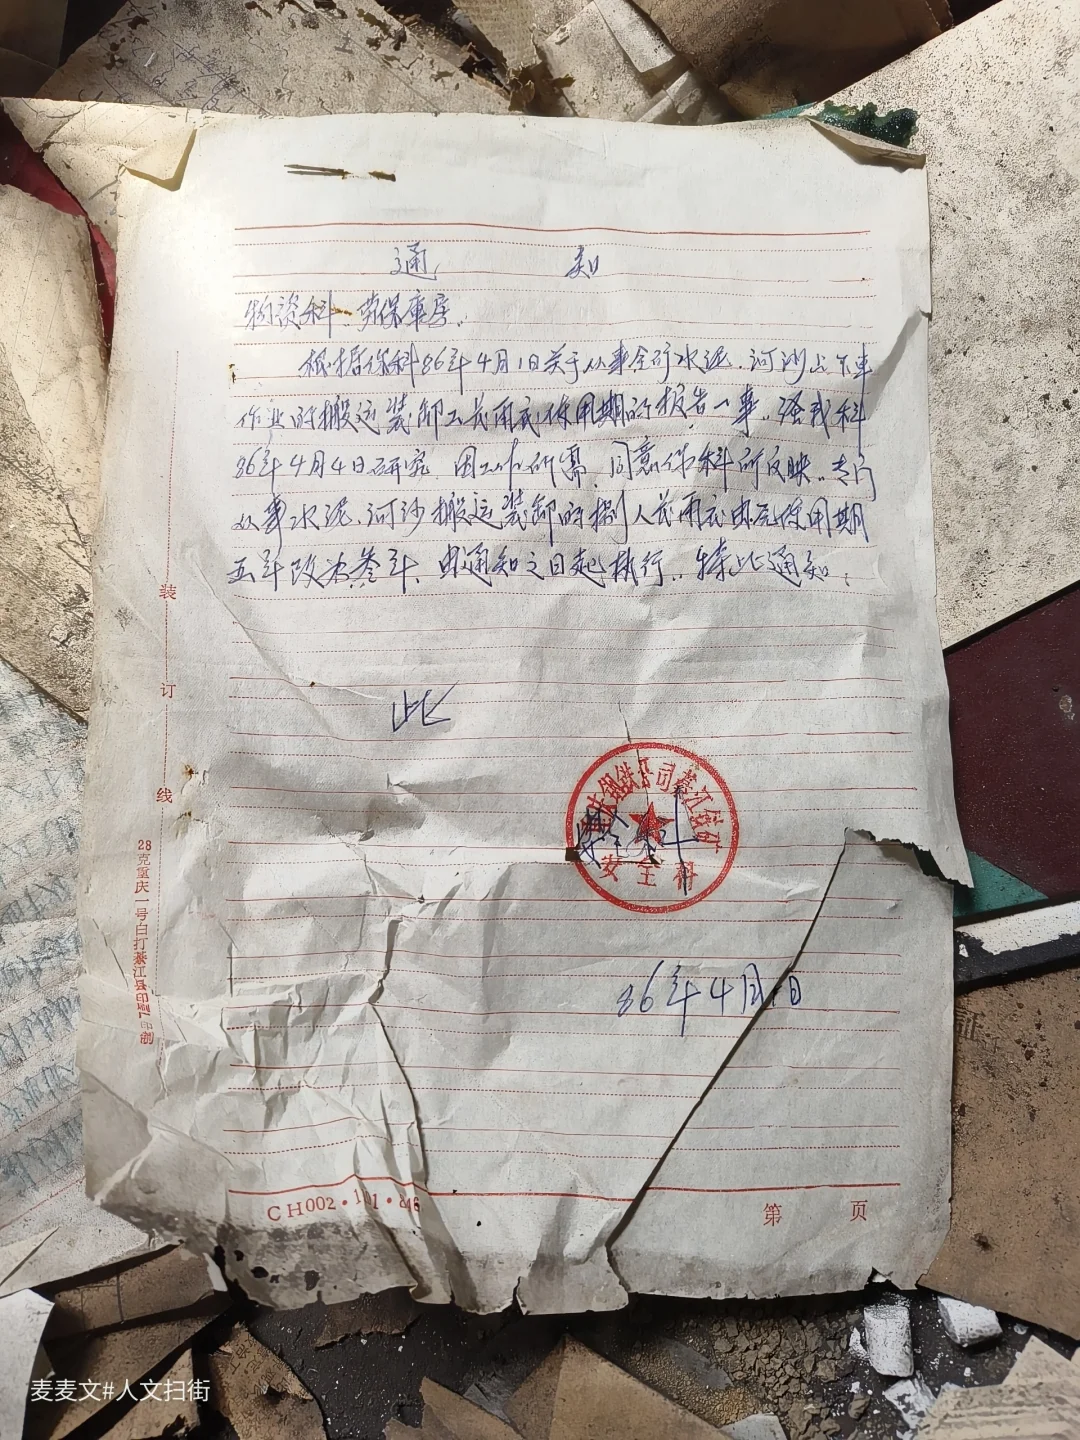 通 知
物资科、劳保库房：
根据保科86年4月1日关于从事全矿水泥、河沙上下车
作业的搬运装卸工长雨衣使用期的报告一事。经我科
86年4月4日研究，因工作所需，同意保科所反映。专门
从事水泥、河沙搬运装卸的 人长雨衣由 使用期
五年改为叁年，由通知之日起执行。特此通知。
此
重庆钢铁公司綦江铁矿
安全科
安全科
86年4月 日
装
订
线
28克重庆一号白打綦江县印刷厂印制
CH002·101·846
第 页
证
麦麦文#人文扫街